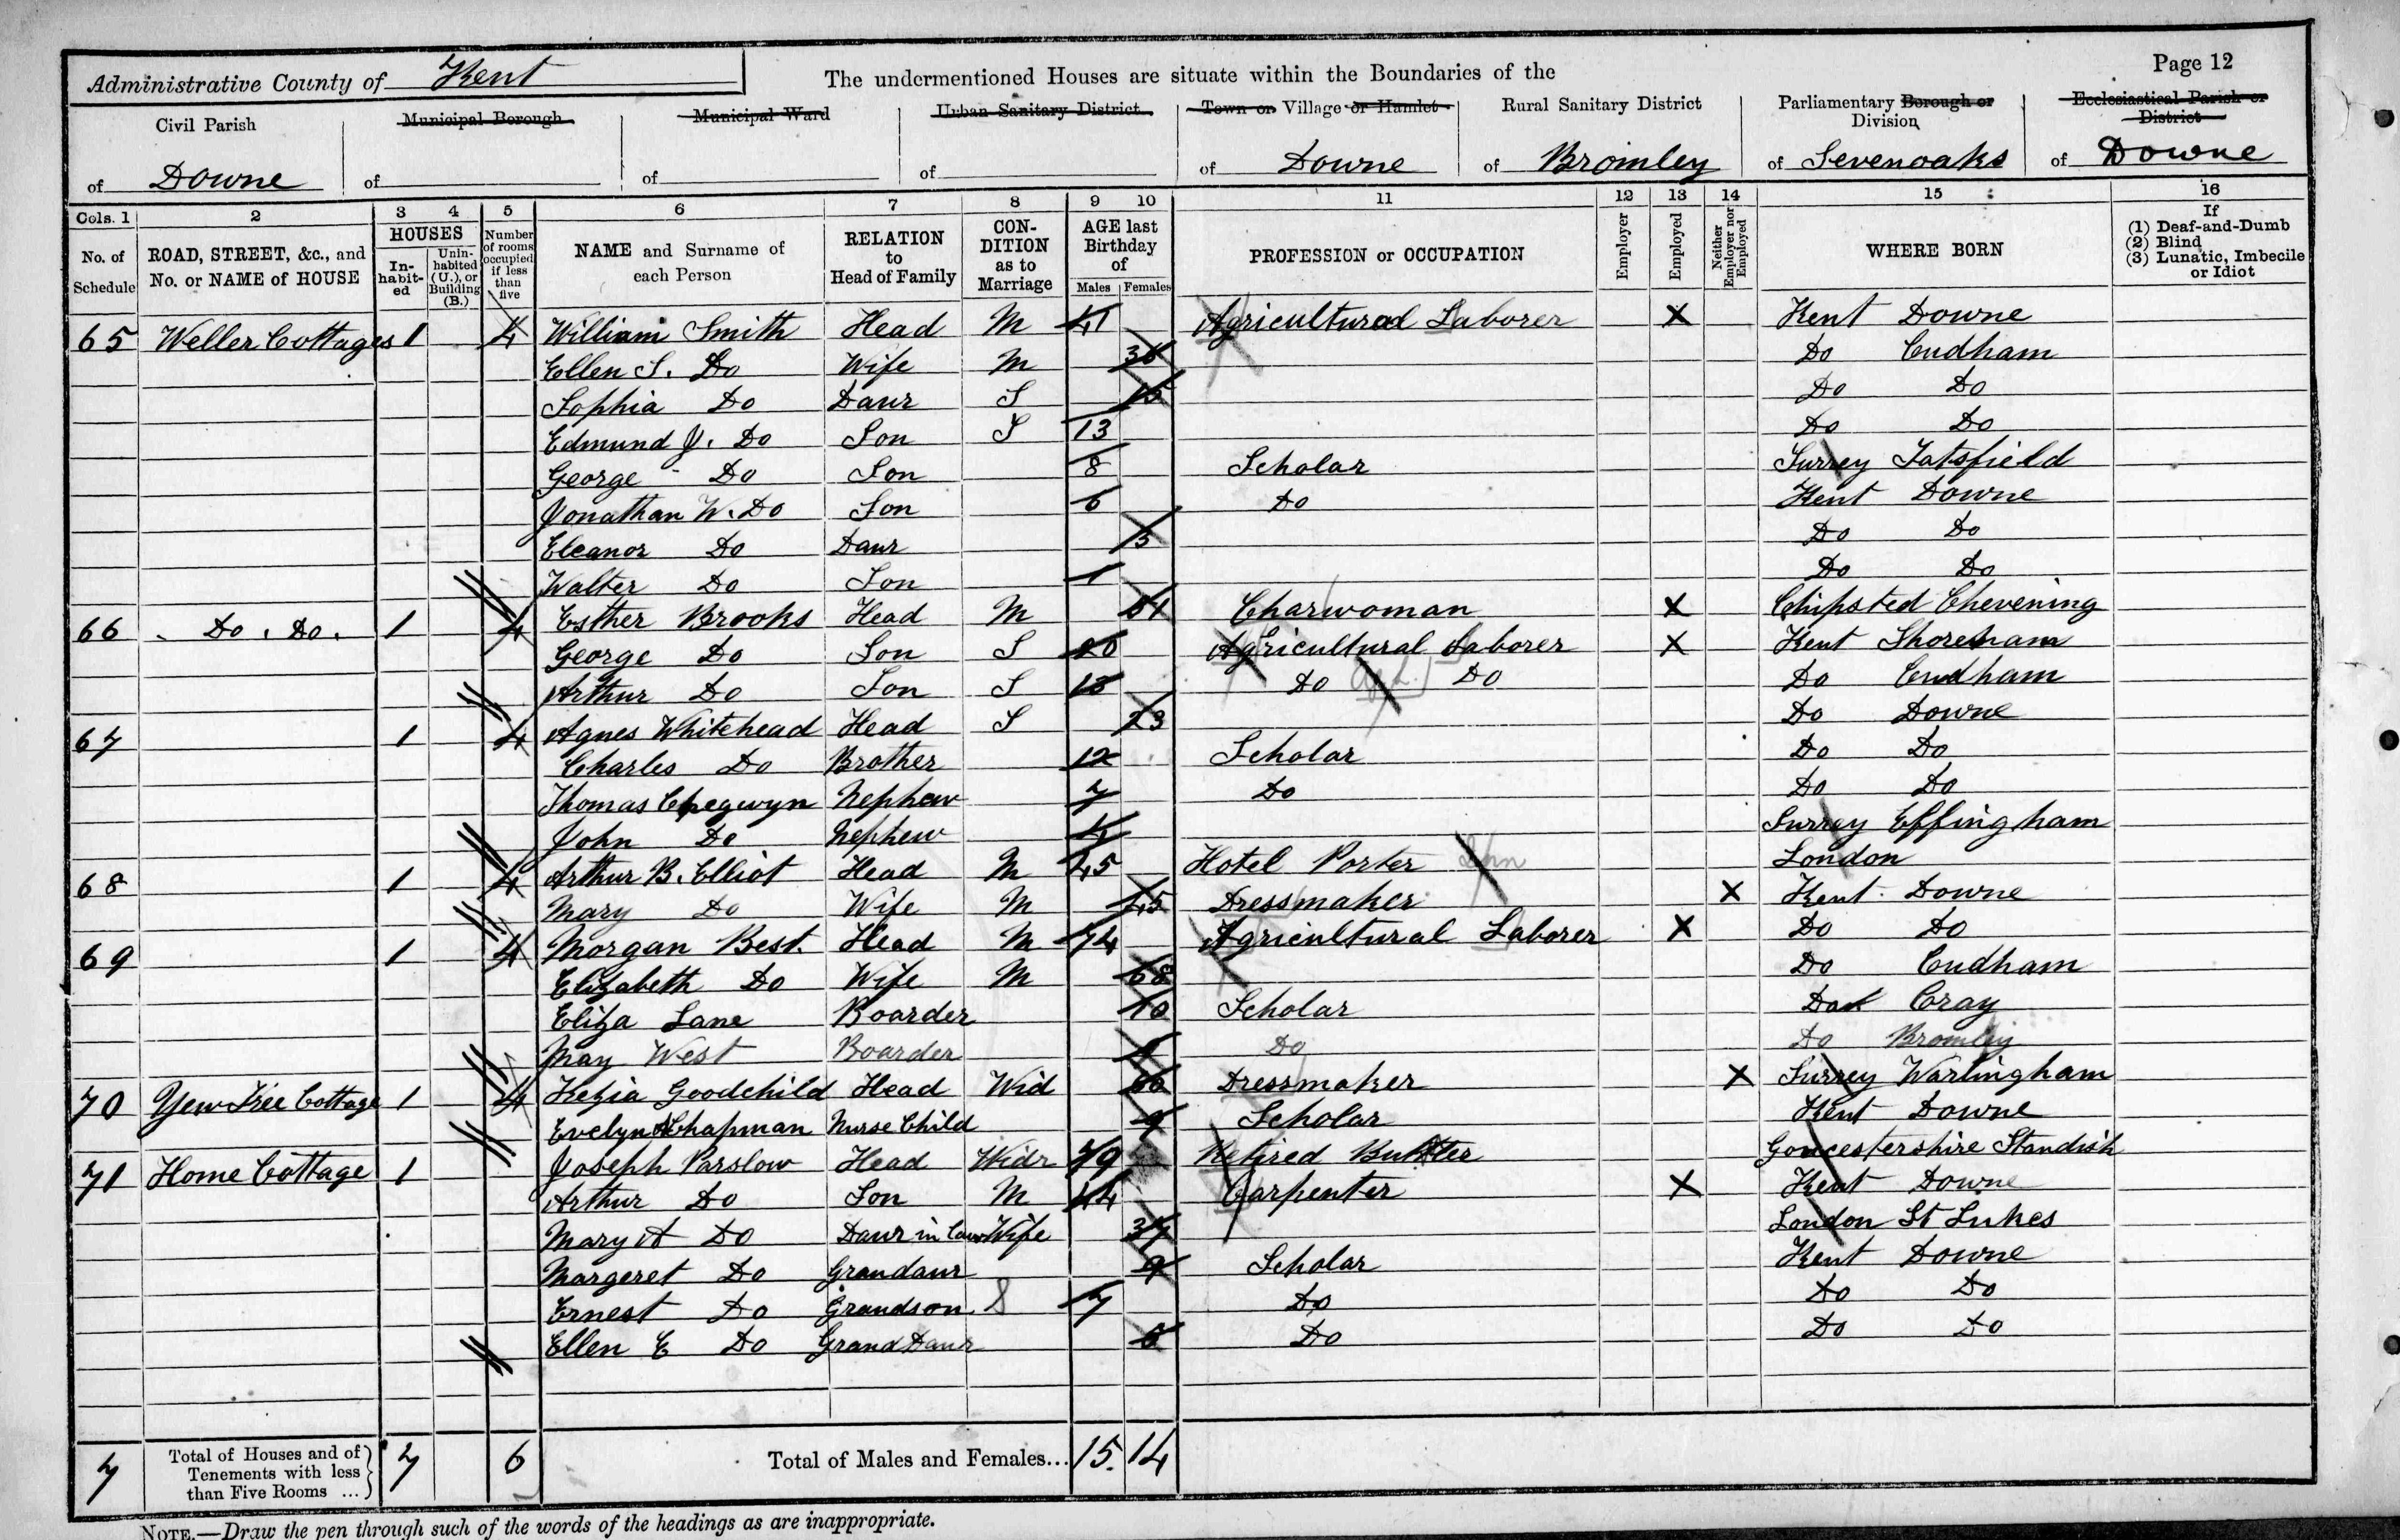 Page 12
Administrative County of Kent
The undermentioned Houses are situate within the Boundaries of the
Civil Parish of Downe
Municipal Borough of
Municipal Ward of
Urban Sanitary District of
Town or Village or Hamlet of Downe
Rural Sanitary District of Bromley
Parliamentary Borough or Division of Sevenoaks
Ecclesiastical Parish or District of Downe
Cols. 1 2 3 4 5 6 7 8 9 10 11 12 13 14 15 16
No. of Schedule
ROAD, STREET, &c., and No. or NAME of HOUSE
HOUSES
In-habit-ed
Unin-habited (U.), or Building (B.)
Number of rooms occupied if less than five
NAME and Surname of each Person
RELATION to Head of Family
CON-DITION as to Marriage
AGE last Birthday of
Males Females
PROFESSION or OCCUPATION
Employer
Employed
Neither Employer nor Employed
WHERE BORN
If
(1) Deaf-and-Dumb
(2) Blind
(3) Lunatic, Imbecile or Idiot
65 Weller Cottages 1 4 William Smith Head M 41 Agricultural Laborer X Kent Downe
Ellen S. Do Wife M Do Cudham
Sophia Do Daur S 15 Do Do
Edmund J. Do Son S 13 Do Do
George Do Son 8 Scholar Surrey Tatsfield
Jonathan W. Do Son 6 Do Kent Downe
Eleanor Do Daur 3 Do Do
Walter Do Son 1 Do Do
66 Do. Do. 1 4 Esther Brooks Head M 51 Charwoman X Chipsted Chevening
George Do Son S 20 Agricultural Laborer X Kent Shoreham
Arthur Do Son S Do Do Do Cudham
67 1 4 Agnes Whitehead Head S 23 Do Downe
Charles Do Brother 12 Scholar Do Do
Thomas Chegwyn Nephew 7 Do Do Do
John Do Nephew 4 Surrey Effingham
68 1 4 Arthur B. Elliot Head M 45 Hotel Porter London
Mary Do Wife M 45 Dressmaker X Kent Downe
69 1 4 Morgan Best. Head M 74 Agricultural Laborer X Do Do
Elizabeth Do Wife M 68 Do Cudham
Eliza Lane Boarder 10 Scholar Do Cray
May West Boarder Do Do Bromley
70 Yew Tree Cottage 1 4 Kezia Goodchild Head Wid 60 Dressmaker X Surrey Warlingham
Evelyn Chapman Nurse Child 9 Scholar Kent Downe
71 Home Cottage 1 Joseph Parslow Head Widr 79 Retired Butler Goucestershire Standish
Arthur Do Son M 44 Carpenter X Kent Downe
Mary A Do Daur in law Wife 37 London St Lukes
Margeret Do Grandaur 9 Scholar Kent Downe
Ernest Do Grandson 7 Do Do Do
Ellen E Do Grand Daur 5 Do Do Do
7 Total of Houses and of Tenements with less than Five Rooms ... 7 6 Total of Males and Females... 15. 14
NOTE.—Draw the pen through such of the words of the headings as are inappropriate.